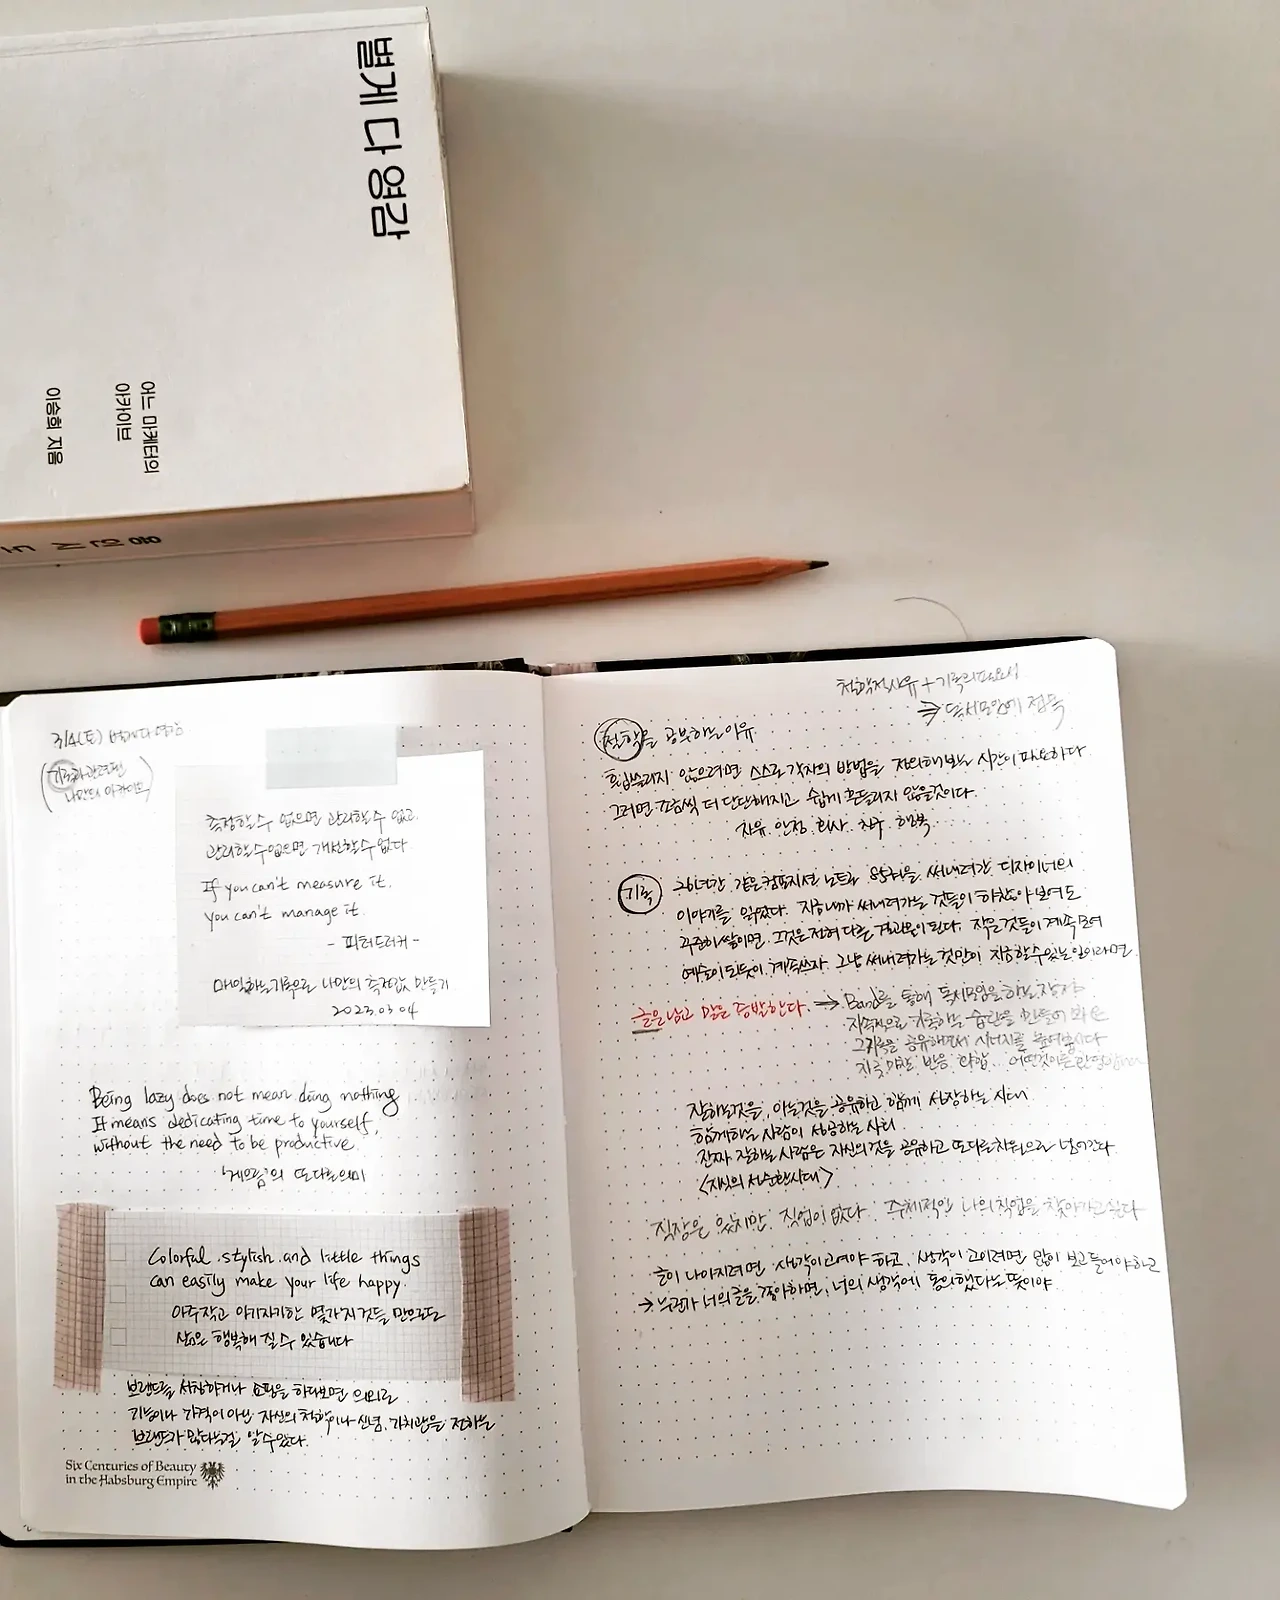 별게 다 영감
어느 마케터의
아카이브
이승희 지음
3/4(토) 별게다영감
(기록과 관련된
나만의 아카이브)
측정할 수 없으면 관리할 수 없고,
관리할 수 없으면 개선할 수 없다
If you can't measure it.
you can't manage it.
- 피터드러커 -
매일하는기록으로 나만의 측정값 만들기
2023.03.04
Being lazy does not mean doing nothing
It means dedicating time to yourself,
without the need to be productive.
'게으름'의 또다른의미
Colorful, stylish and little things
can easily make your life happy.
아주작고 아기자기한 몇가지것들 만으로도
삶은 행복해 질 수 있습니다
브랜드를 시작하거나 쇼핑을 하다보면 의외로
기능이나 가격이 아닌 자신의 철학이나 신념, 가치관을 전하는
브랜드가 많다는걸 알 수 있다.
Six Centuries of Beauty
in the Habsburg Empire
철학적사유 + 기록의필요성
⇒ 독서모임에 접목
철학을 공부하는이유
휩쓸리지 않으려면 스스로 각자의 방법을 정의해보는 시간이 필요하다
그러면 조금씩 더 단단해지고 쉽게 흔들리지 않을것이다.
자유, 안정, 회사, 친구, 행복
기록
26년간 같은 컴포지션 노트로 85권을 써내려간 디자이너의
이야기를 읽었다. 지금내가 써내려가는 것들이 하찮아 보여도
꾸준히쌓이면 그것은 전혀 다른 결과물이 된다. 작은것들이 계속모여
예술이 되듯이. 계속쓰자. 그냥 써내려가는 것만이 지금할수있는일이라면.
글은남고 말은 증발한다. → Band를 통해 독서모임을 하는 장치
지속적으로 기록하는 습관을 만들어
그기록을 공유하면서 시너지를 높여줍니다
잘하는것을, 아는것을 공유하고 함께 성장하는 시대
함께하는 사람이 성공하는 사회
진짜 잘하는사람은 자신의것을 공유하고 또다른차원으로 넘어간다
<지식의 선순환시대>
직장은 있지만 직업이 없다. 주체적인 나의직업을 찾아가고싶다
글이 나아지려면 생각이고여야 하고, 생각이 고이려면 많이 보고들어야하고
→ 누군가 너의글을 좋아하면, 너의 생각에 동의했다는 뜻이야